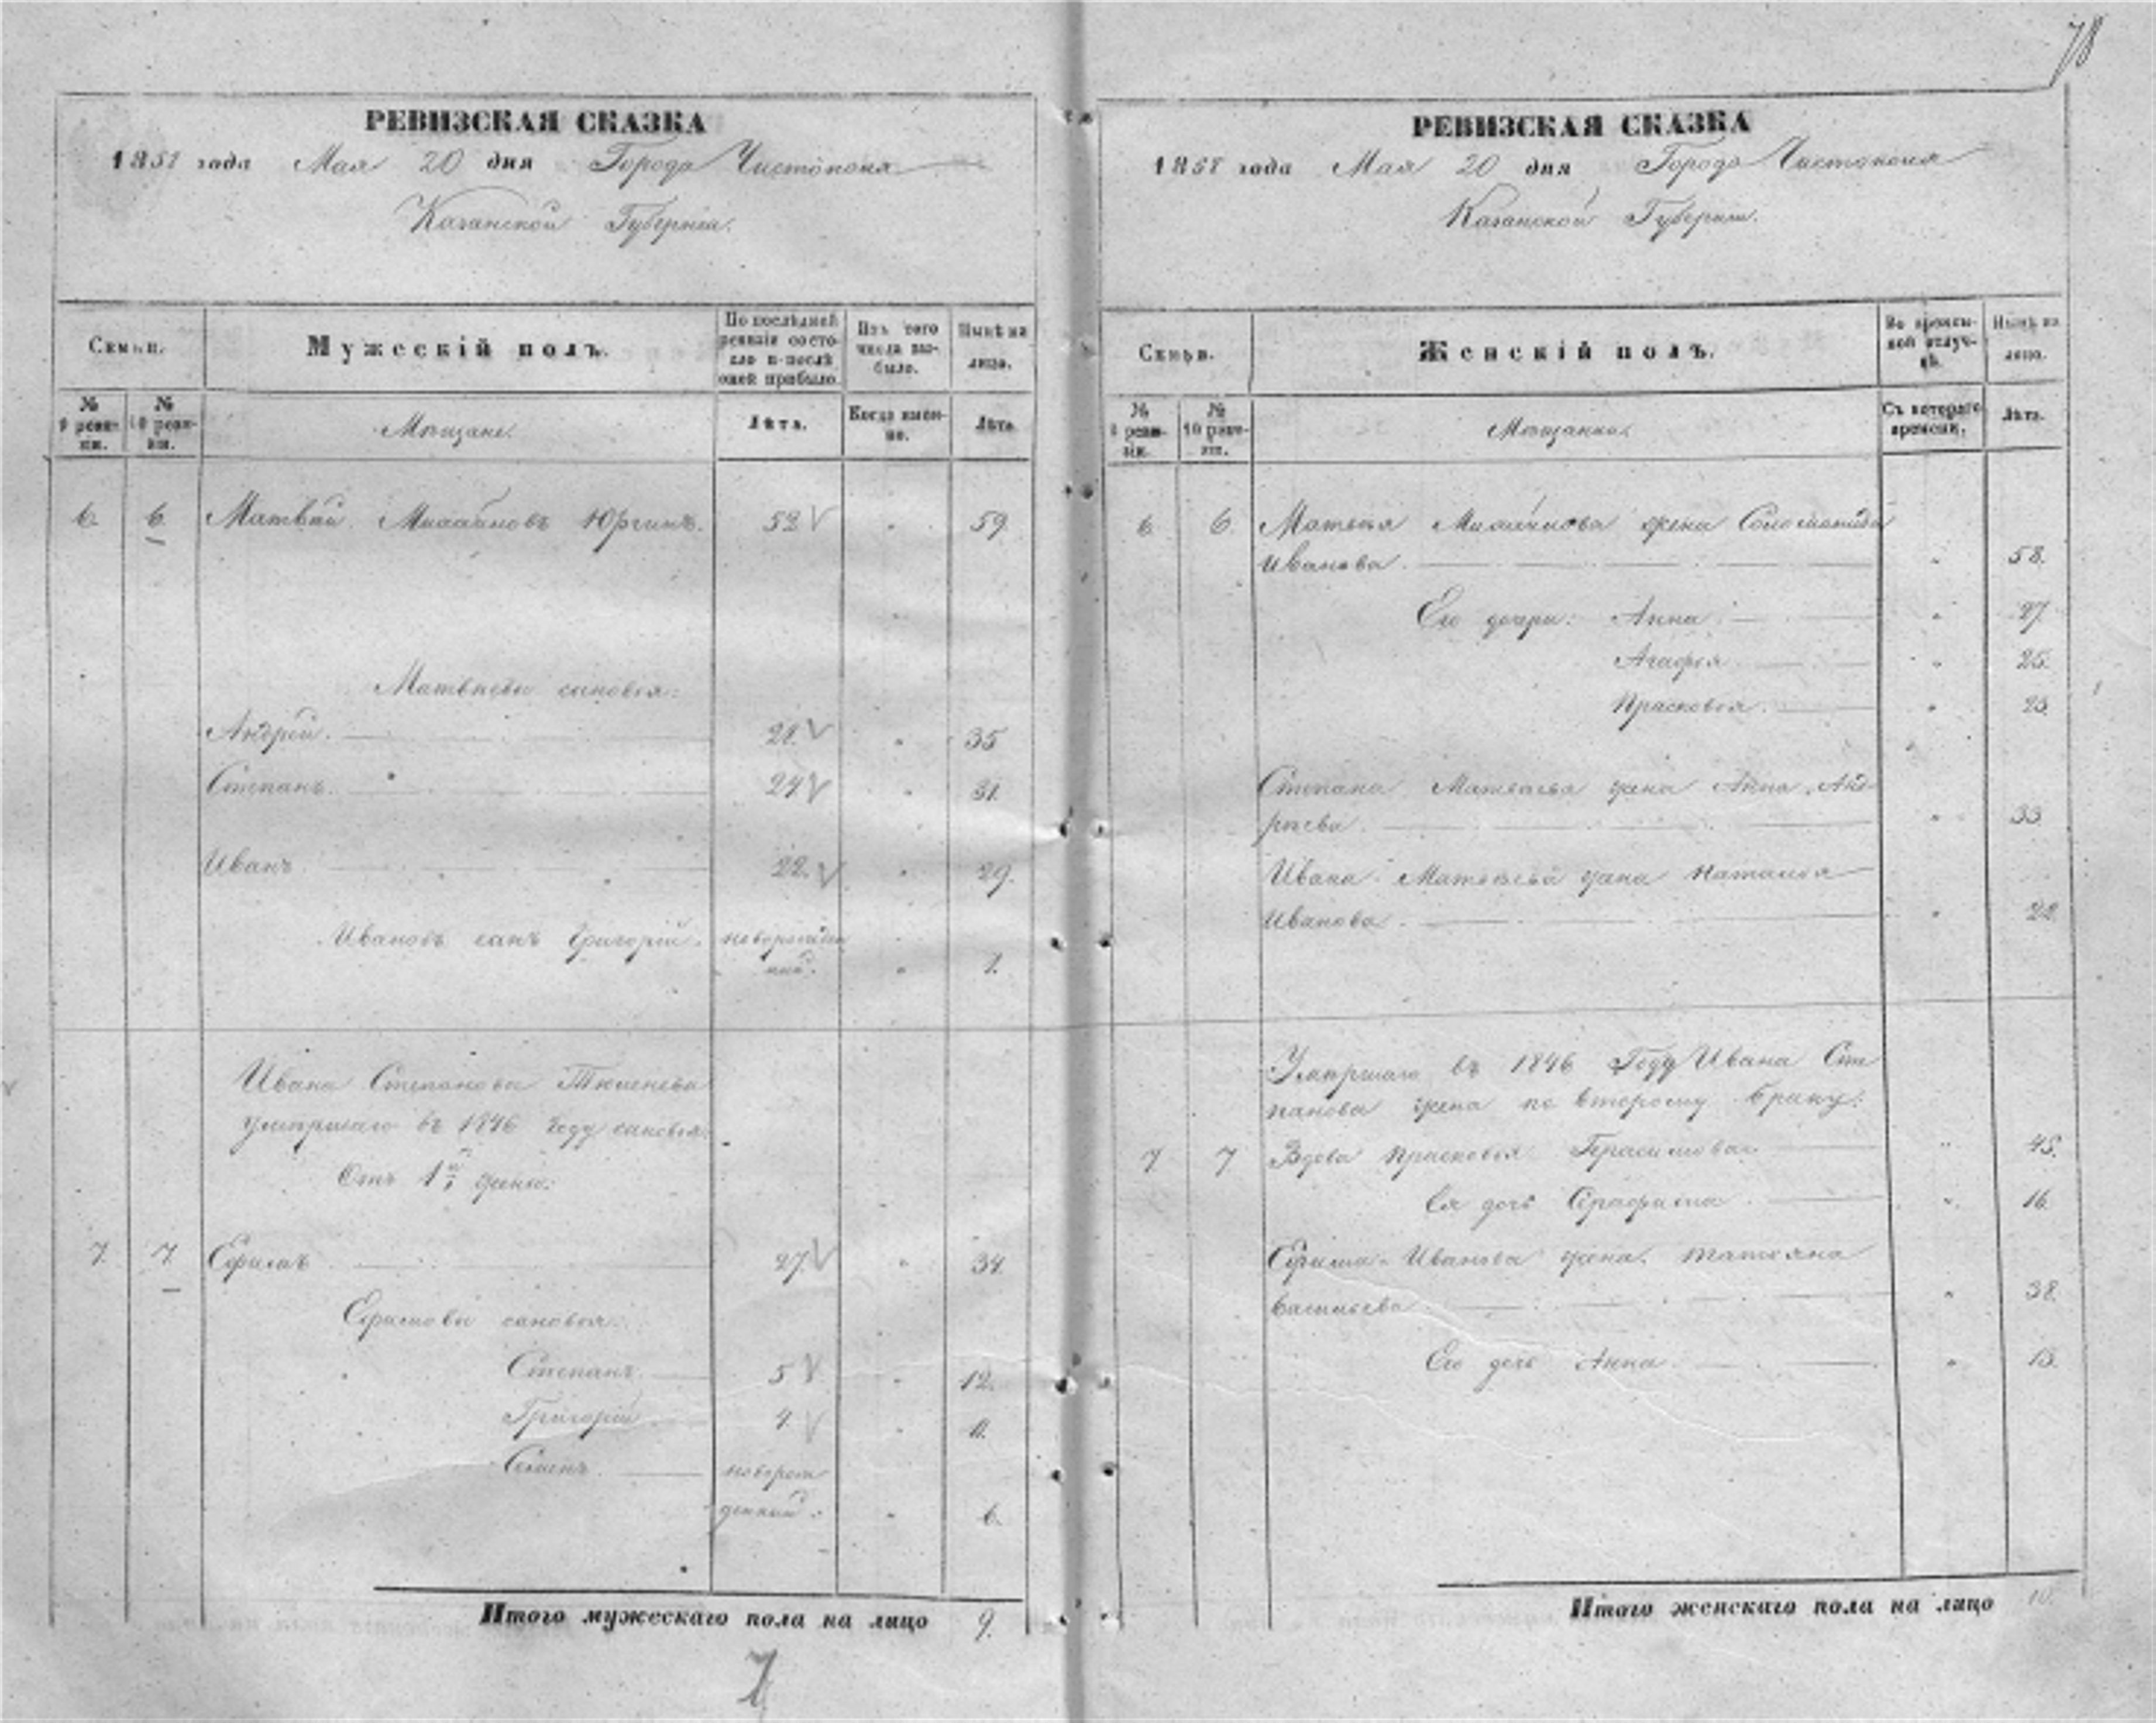 78
РЕВИЗСКАЯ СКАЗКА
1858 года Мая 20 дня Города Чистополя
Казанской Губерніи.
Семьи.
Мужескій полъ.
По послѣдней ревизіи состояло и послѣ оной прибыло.
Изъ того числа выбыло.
Нынѣ на лицо.
№ 9 ревизіи.
№ 10 ревизіи.
Мѣщане.
Лѣта.
Когда именно.
Лѣта.
6. 6. Матвѣй 52 " 59.
Матвѣевы сыновья:
Андрей. 28. " 35
Степанъ. 24 " 31.
Иванъ. 22. " 29.
Ивановъ сынъ Григорій. новорожден
ный. " 1.
Ивана Степанова
умершаго въ 1846 году сыновья:
Отъ 1й жены:
7. 7. Ефимъ 27. " 34.
Ефимовы сыновья:
Степанъ. 5 " 12.
Григорій. 4. " 11.
Семенъ. новорож
денный. " 6.
Итого мужескаго пола на лицо 9.
7
РЕВИЗСКАЯ СКАЗКА
1858 года Мая 20 дня Города Чистополя
Казанской Губерніи.
Семьи.
Женскій полъ.
Во временной отлучкѣ.
Нынѣ на лицо.
№ 9 ревизіи.
№ 10 ревизіи.
Мѣщанки.
Съ котораго времени.
Лѣта.
6 6. Матвѣя жена Соломонида
Иванова. " 58.
Его дочери: Анна. " 27.
Агафья. " 25.
Прасковья. " 23.
Степана Матвѣева жена Анна Анд-
рѣева. " 33.
Ивана Матвѣева жена Наталья
Иванова. " 22.
Умершаго въ 1846 Году Ивана Сте
панова жена по второму браку:
7 7 Вдова Прасковья Герасимова " 45.
Ея дочь Серафима. " 16.
Ефима Иванова жена Татьяна
Васильева. " 38.
Его дочь Анна. " 13.
Итого женскаго пола на лицо 10.